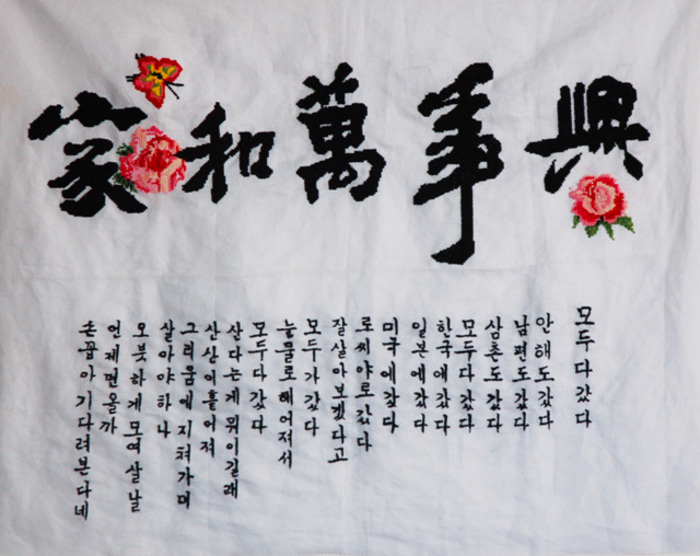 家和萬事興
모두다갔다
안해도갔다
남편도갔다
삼촌도갔다
모두다갔다
한국에갔다
일본에갔다
미국에갔다
로씨야로갔다
잘살아보겠다고
모두가갔다
눈물로헤어져서
모두다갔다
산다는게뭐이길래
산산이흩어져
그리움에지쳐가며
살아야하나
오붓하게모여살날
언제면올까
손꼽아기다려본다네